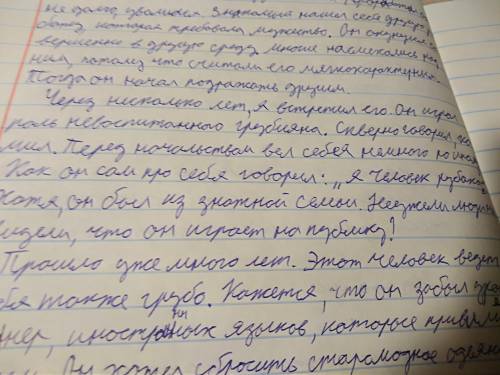 не долго, уволился. Знакомый нашёл себе другую
работу, которая требовала мужество. Он окунулся
вершенно в другую среду, многие насмехались над
ним, потому что считали его мягкохарактурным.
Тогда он начал подражать другим.
Через нисколько лет, я встретил его. Он играл
роль невоспитанного грубияна. Скверно говорил,
мил. Перед начальством вел себя немного по иному
Как он сам про себя говорил: „Я человек рубаха
Хотя, он был из знатной семьи. Неужели люди не
видели, что он играет на публику!
Прошло уже много лет. Этот человек ведёт
бя также грубо. Кажется, что он забыл
нер, иностранных языков, которые привили
Он хотел сбросить старомодное одеяние